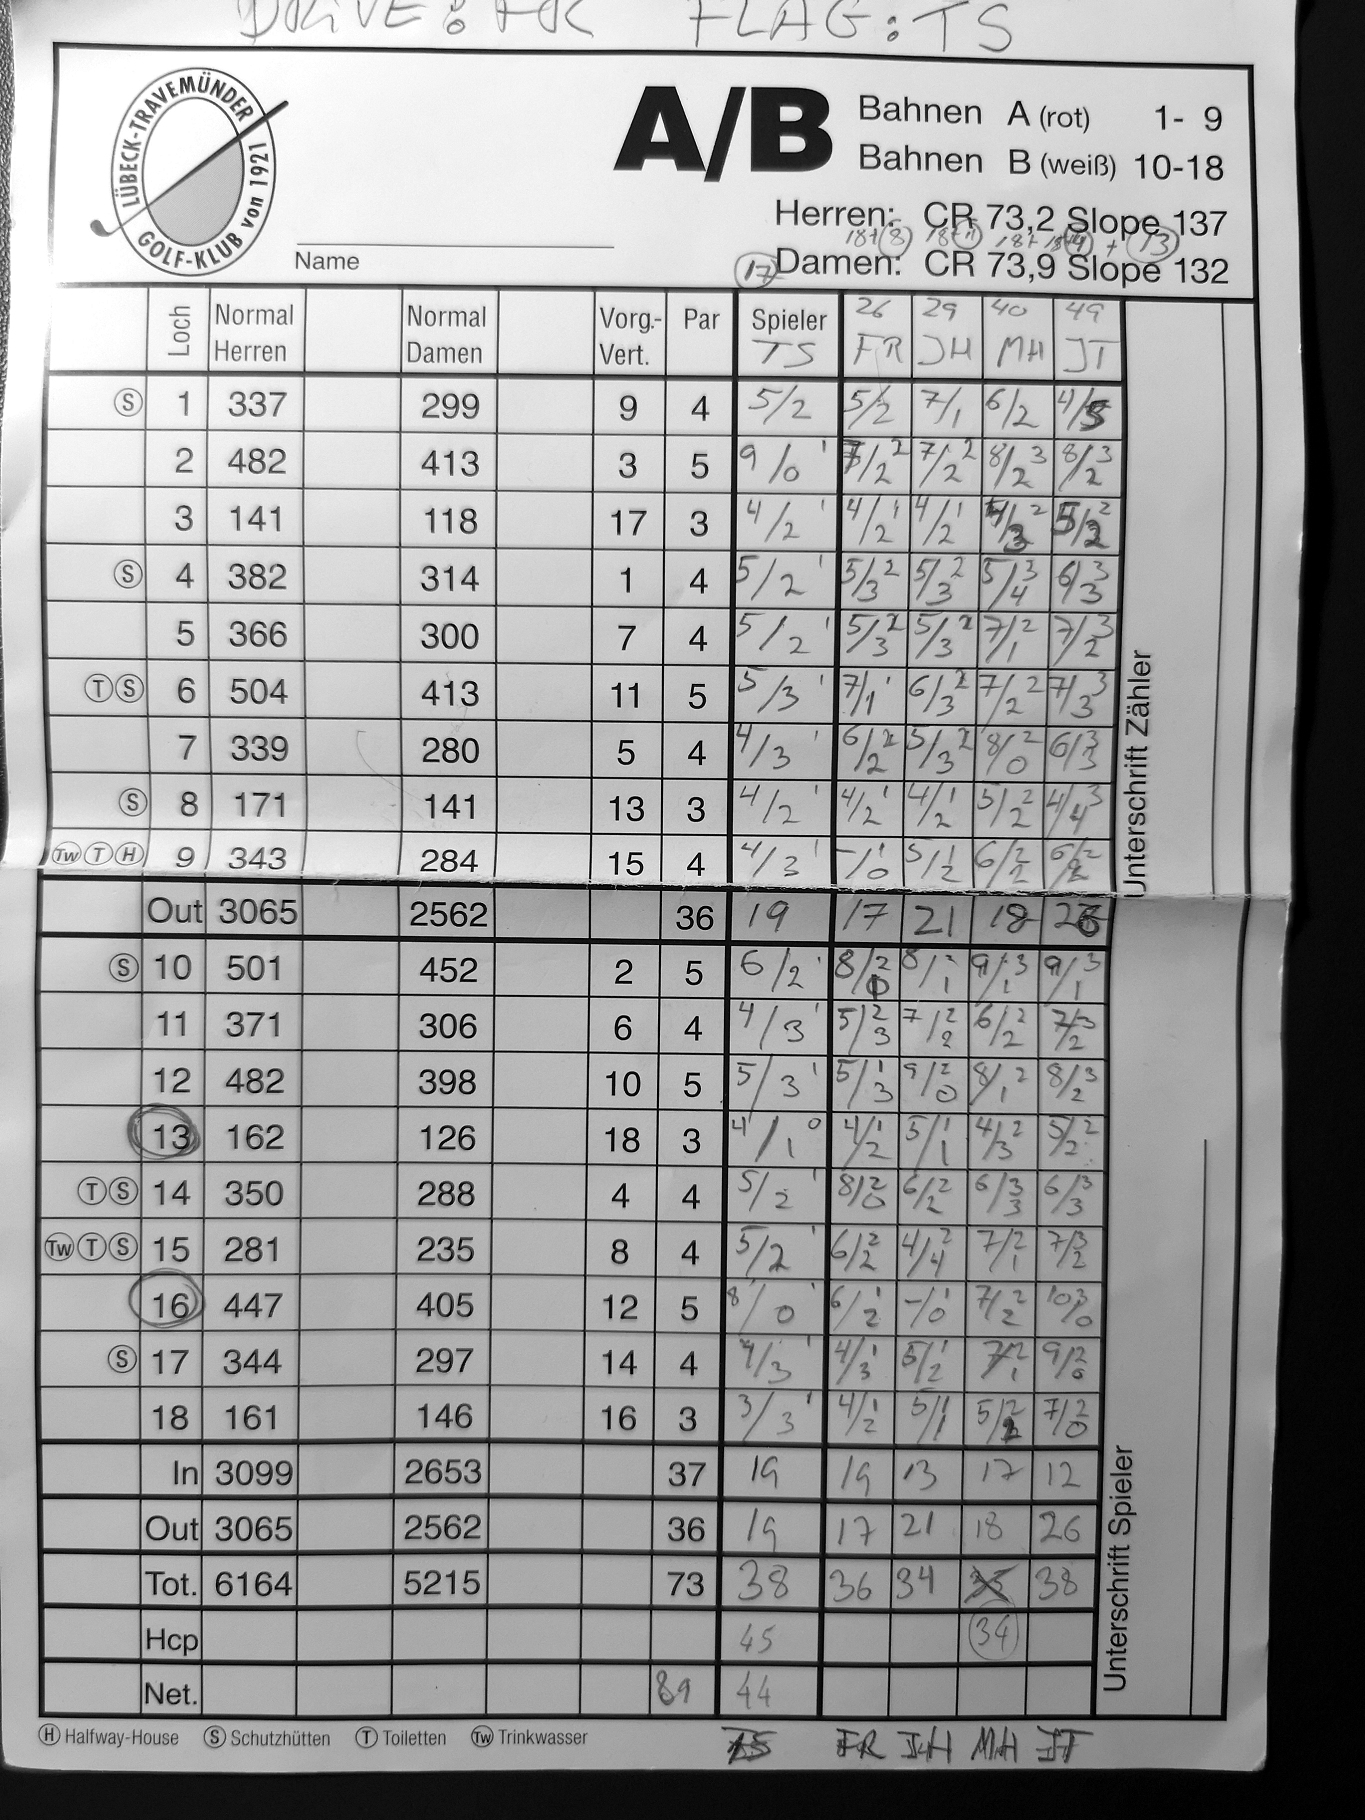 DRIVE: FR FLAG: TS
LÜBECK-TRAVEMÜNDER
GOLF-KLUB von 1921
A/B
Bahnen A (rot) 1- 9
Bahnen B (weiß) 10-18
Herren: CR 73,2 Slope 137
18+(8) 18+(11) 18+ 18+ + (13)
(17) Damen: CR 73,9 Slope 132
Name
Loch Normal Herren Normal Damen Vorg.-Vert. Par Spieler TS 26 FR 29 JH 40 MH 49 JT
S 1 337 299 9 4 5/2 5/2 7/1 6/2 4/5
2 482 413 3 5 9/0 1 7/2 2 7/2 2 8/2 3 8/2 3
3 141 118 17 3 4/2 1 4/2 1 4/2 1 4/3 2 5/2 2
S 4 382 314 1 4 5/2 1 5/3 2 5/3 2 5/4 3 6/3 3
5 366 300 7 4 5/2 1 5/3 2 5/3 2 7/1 2 7/2 3
T S 6 504 413 11 5 5/3 1 7/1 1 6/3 2 7/2 2 7/3 3
7 339 280 5 4 4/3 1 6/2 2 5/3 2 8/0 2 6/3 3
S 8 171 141 13 3 4/2 1 4/2 1 4/2 1 5/2 2 4/4 3
Tw T H 9 343 284 15 4 4/3 1 -/0 1 5/2 1 6/2 2 6/2 2
Out 3065 2562 36 19 17 21 18 26
S 10 501 452 2 5 6/2 1 8/0 2 8/1 2 9/1 3 9/1 3
11 371 306 6 4 4/3 1 5/3 2 7/2 2 6/2 2 7/2 3
12 482 398 10 5 5/3 1 5/3 1 9/0 2 8/1 2 8/2 3
13 162 126 18 3 4/1 0 4/2 1 5/1 1 4/3 2 5/2 2
T S 14 350 288 4 4 5/2 1 8/0 2 6/2 2 6/3 3 6/3 3
Tw T S 15 281 235 8 4 5/2 1 6/2 2 4/4 2 7/1 2 7/2 3
16 447 405 12 5 8/0 1 6/2 1 -/0 1 7/2 2 10/0 3
S 17 344 297 14 4 4/3 1 4/3 1 5/2 1 7/1 2 9/0 2
18 161 146 16 3 3/3 1 4/2 1 5/1 1 5/2 2 7/0 2
In 3099 2653 37 19 19 13 17 12
Out 3065 2562 36 19 17 21 18 26
Tot. 6164 5215 73 38 36 34 38
Hcp 45 34
Net. 89 44
H Halfway-House S Schutzhütten T Toiletten Tw Trinkwasser TS FR JH MH JT
Unterschrift Zähler
Unterschrift Spieler